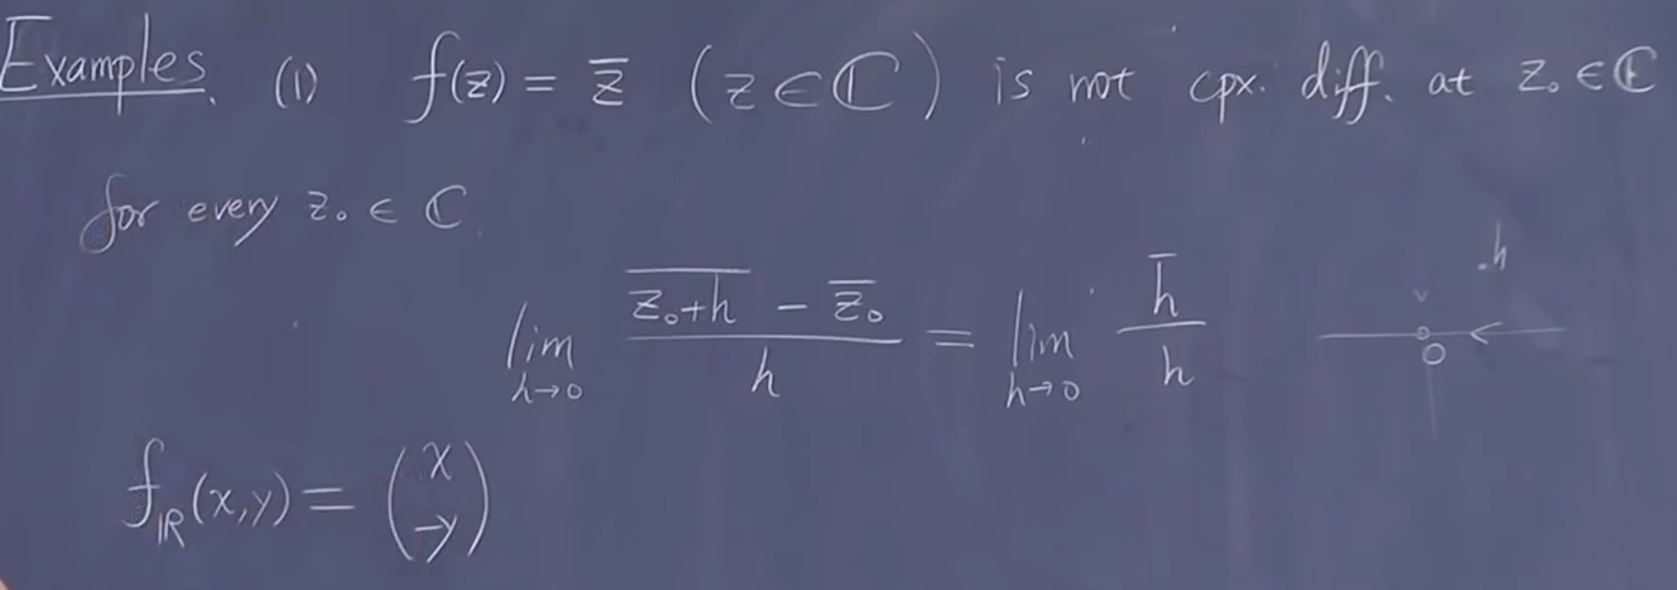 Examples. (1) f(z) = z̅ (z ∈ ℂ) is not cpx. diff. at z₀ ∈ ℂ
for every z₀ ∈ ℂ.
lim_{h→0} (\overline{z₀+h} - \overline{z₀})/h = lim_{h→0} \overline{h}/h
.h
0
f_ℝ(x,y) = (x
-y)